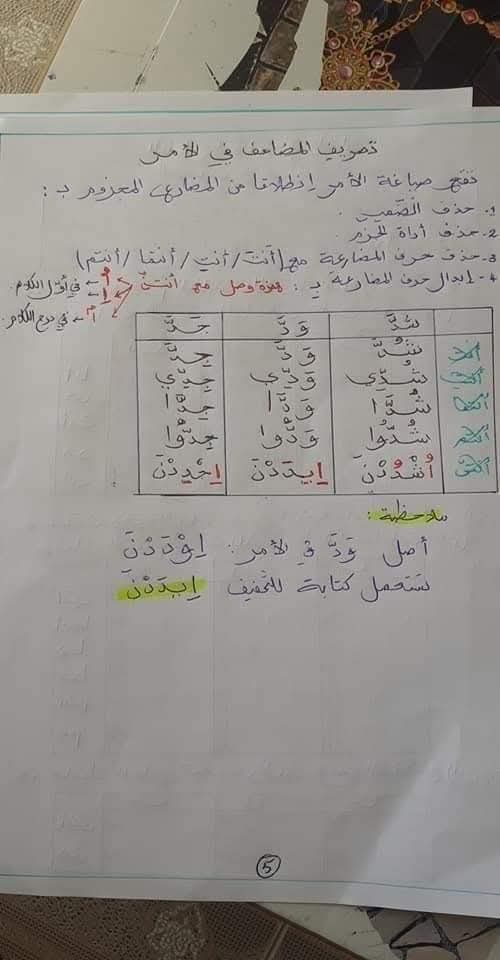 تصريف المضاعف في الأمر
نقع صياغة الأمر إنطلاقا من المضارع المجزوم بـ :
1- حذف الضّمير .
2- حذف أداة الجزم .
3- حذف حرف المضارعة مع (أنتَ / أنتِ / أنتما / أنتم)
4- إبدال حرف المضارعة بـ : همزة وصل مع أنتنّ
أُ
اِ ← في أوّل الكلام
ٱ ← في درج الكلام .
شَدَّ وَدَّ جَدَّ
أنتَ شُدَّ وَدَّ جِدَّ
أنتِ شُدِّي وَدِّي جِدِّي
أنتما شُدَّا وَدَّا جِدَّا
أنتم شُدُّوا وَدُّوا جِدُّوا
أنتنّ اُشْدُدْنَ اِيدَدْنَ اِجْدِدْنَ
ملاحظة :
أصل وَدَّ في الأمر : اِوْدَدْنَ
نستعمل كتابة للتخفيف اِيدَدْنَ
5